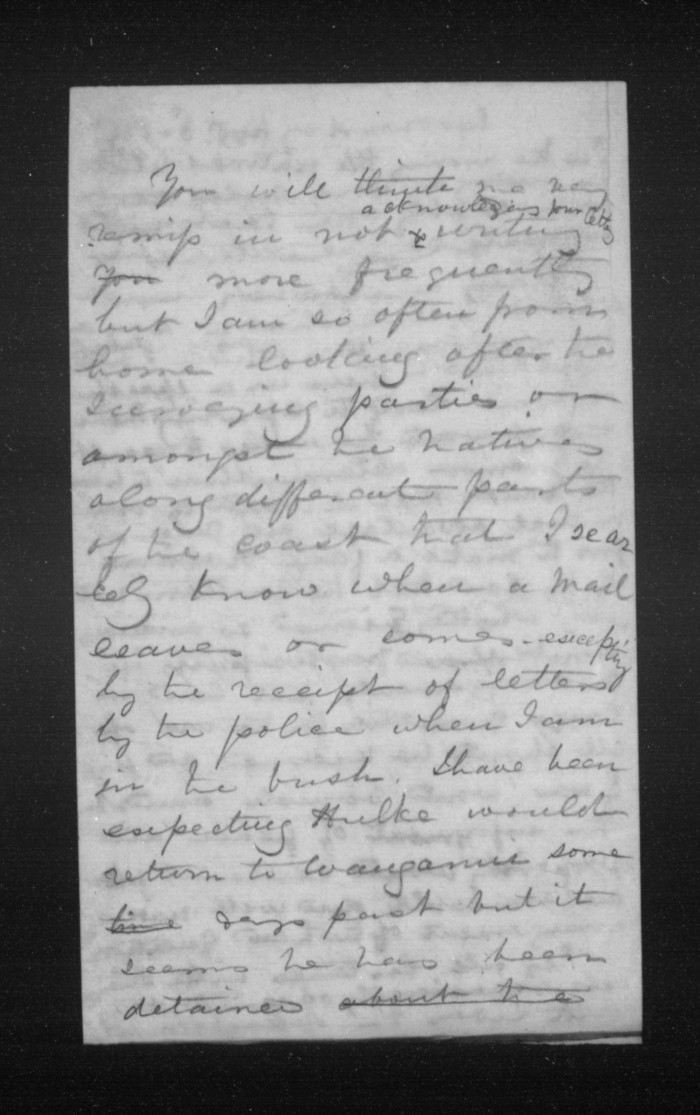 You will think me very
acknowledging your letters
remiss in not & writing
you more frequently
but I am so often from
home looking after the
surveying parties or
amongst the natives
along different parts
of the coast that I scar
cely know when a mail
leaves or comes excepting
by the receipt of letters
by the police when I am
in the bush. I have been
expecting Hulke would
return to Wanganui some
time days past but it
seems he has been
detained about the